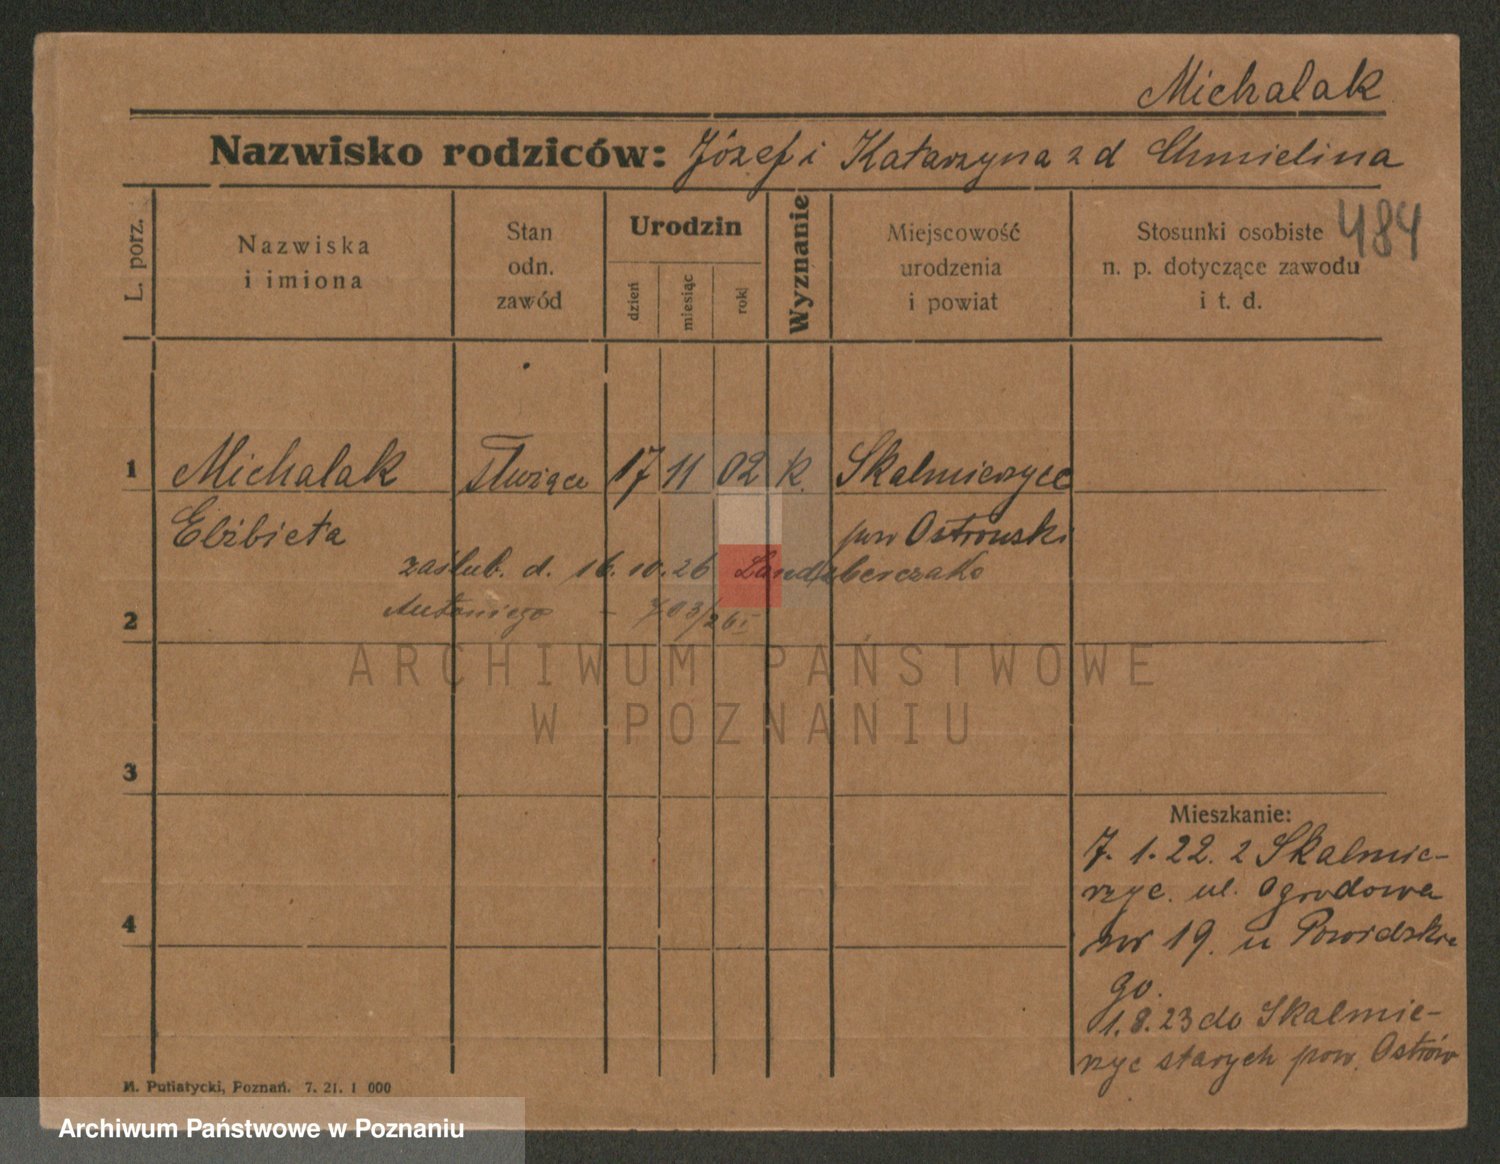 Michalak
Nazwisko rodziców: Józef i Katarzyna z d Chmielina
484
L. porz.
Nazwiska
i imiona
Stan
odn.
zawód
Urodzin
dzień
miesiąc
rok
Wyznanie
Miejscowość
urodzenia
i powiat
Stosunki osobiste
n. p. dotyczące zawodu
i t. d.
1 Michalak Służąca 17 11 02 k. Skalmierzyce
Elżbieta pow Ostrowski
zaślub. d. 16.10.26
Antoniego - 703/26
2
ARCHIWUM PAŃSTWOWE
W POZNANIU
3
Mieszkanie:
7. 1. 22. z Skalmie-
rzyc. ul. Ogrodowa
4
nr 19. u
go.
1.8.23 do Skalmie-
rzyc starych pow. Ostrów
M. Putiatycki, Poznań. 7. 21. 1 000
Archiwum Państwowe w Poznaniu